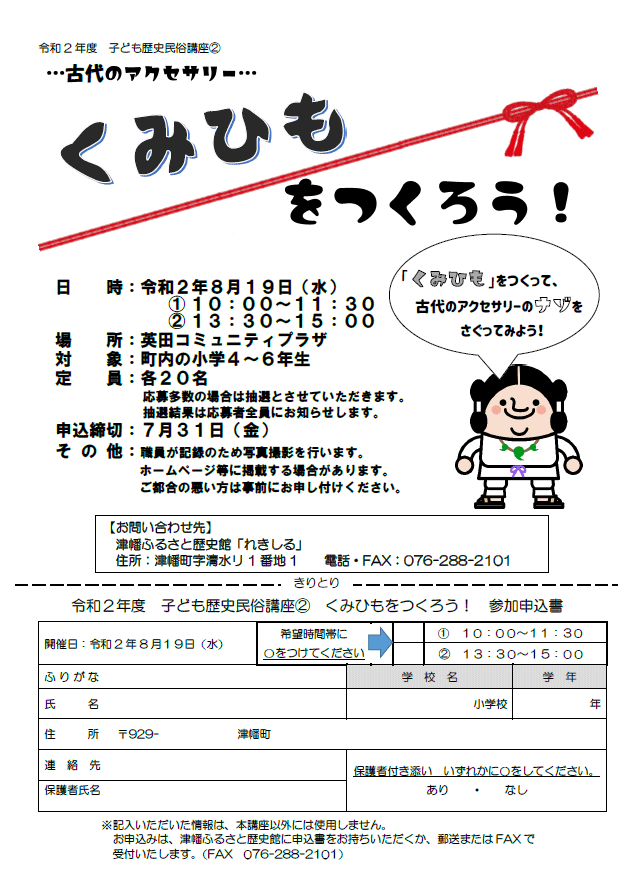 令和2年度　子ども歴史民俗講座②
…古代のアクセサリー…
くみひも
をつくろう！
「くみひも」をつくって、
古代のアクセサリーのナゾを
さぐってみよう！
日　　時：令和2年8月19日（水）
①10：00～11：30
②13：30～15：00
場　　所：英田コミュニティプラザ
対　　象：町内の小学4～6年生
定　　員：各20名
応募多数の場合は抽選とさせていただきます。
抽選結果は応募者全員にお知らせします。
申込締切：7月31日（金）
そ の 他：職員が記録のため写真撮影を行います。
ホームページ等に掲載する場合があります。
ご都合の悪い方は事前にお申し付けください。
【お問い合わせ先】
津幡ふるさと歴史館「れきしる」
住所：津幡町字清水リ1番地1　　電話・FAX：076-288-2101
きりとり
令和2年度　子ども歴史民俗講座②　くみひもをつくろう！　参加申込書
開催日：令和2年8月19日（水）
希望時間帯に
○をつけてください
①　10：00～11：30
②　13：30～15：00
ふりがな　学　校　名　学　年
氏　　名　小学校　年
住　　所　〒929-　津幡町
連　絡　先
保護者氏名
保護者付き添い　いずれかに○をしてください。
あり　・　なし
※記入いただいた情報は、本講座以外には使用しません。
お申込みは、津幡ふるさと歴史館に申込書をお持ちいただくか、郵送またはFAXで
受付いたします。（FAX　076-288-2101）